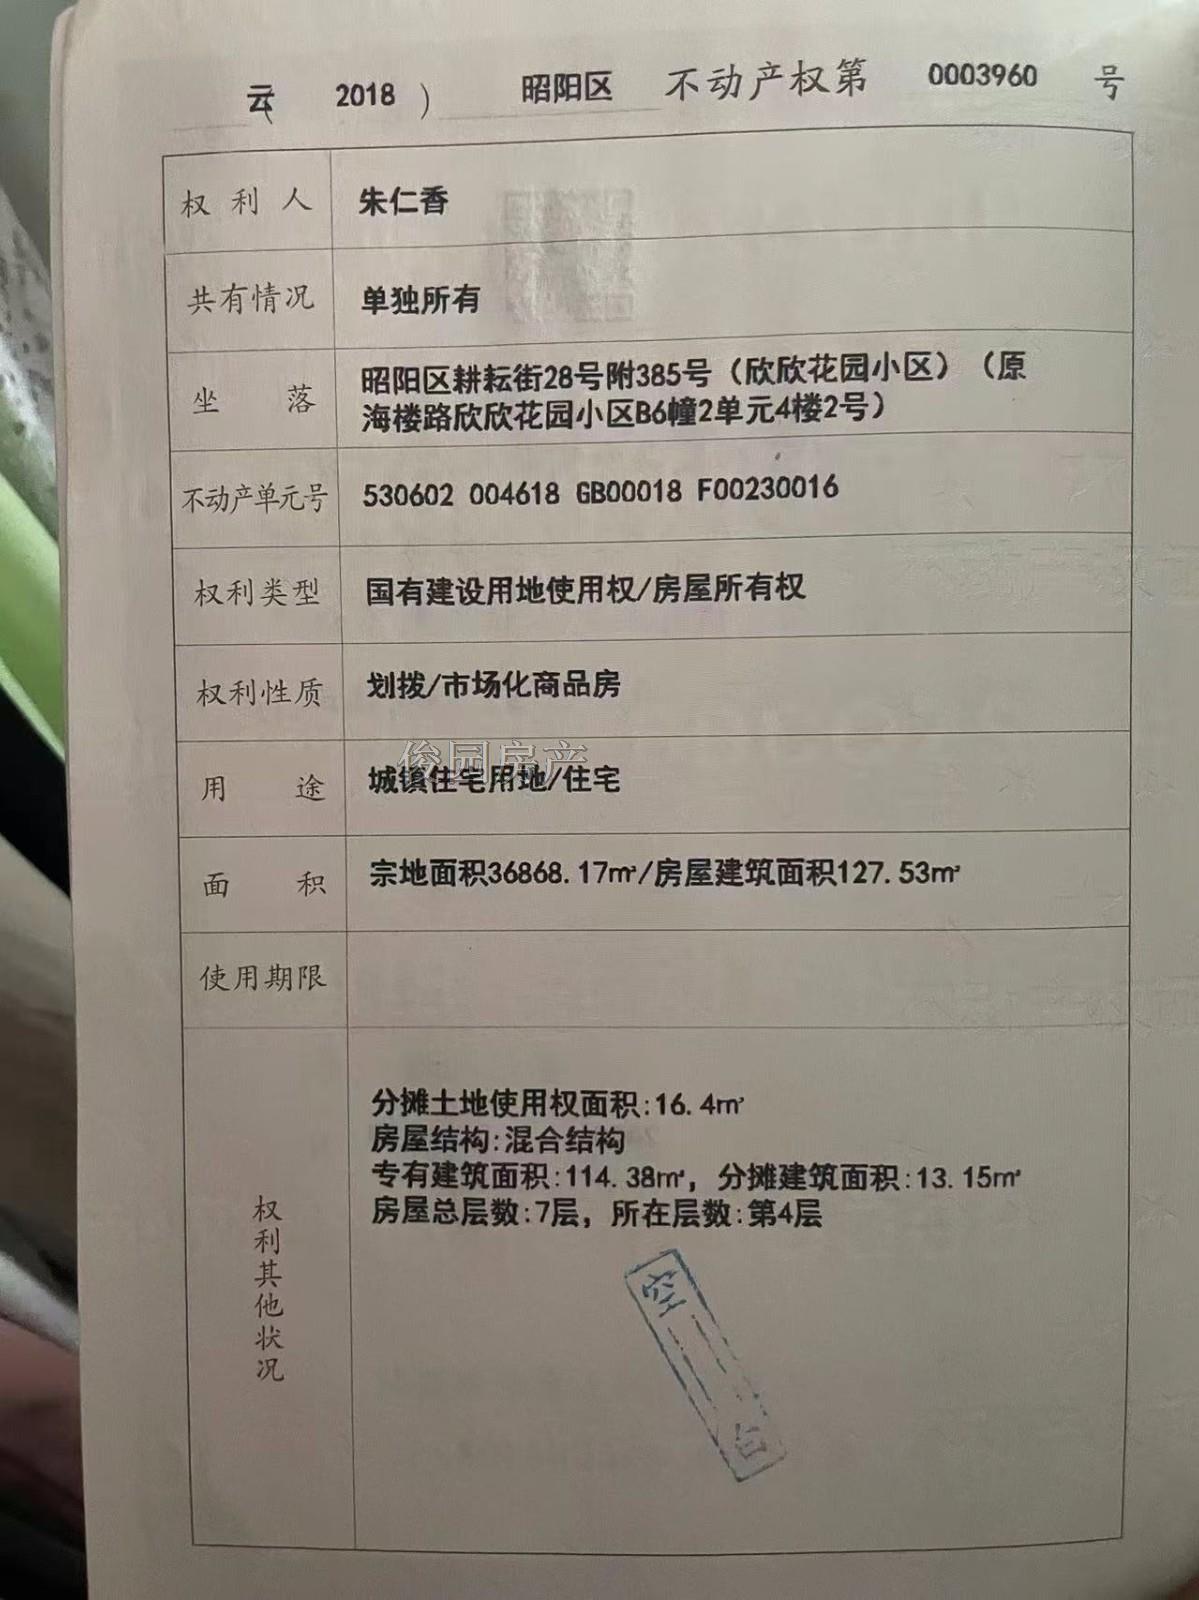 云（ 2018 ） 昭阳区 不动产权第 0003960 号
权利人 朱仁香
共有情况 单独所有
坐落 昭阳区耕耘街28号附385号（欣欣花园小区）（原
海楼路欣欣花园小区B6幢2单元4楼2号）
不动产单元号 530602 004618 GB00018 F00230016
权利类型 国有建设用地使用权/房屋所有权
权利性质 划拨/市场化商品房
俊园房产
用途 城镇住宅用地/住宅
面积 宗地面积36868.17㎡/房屋建筑面积127.53㎡
使用期限
权利其他状况
分摊土地使用权面积:16.4㎡
房屋结构:混合结构
专有建筑面积:114.38㎡，分摊建筑面积:13.15㎡
房屋总层数:7层，所在层数:第4层
空白